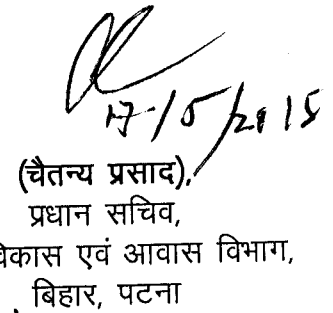 17/5/2018
(चैतन्य प्रसाद),
प्रधान सचिव,
विकास एवं आवास विभाग,
बिहार, पटना